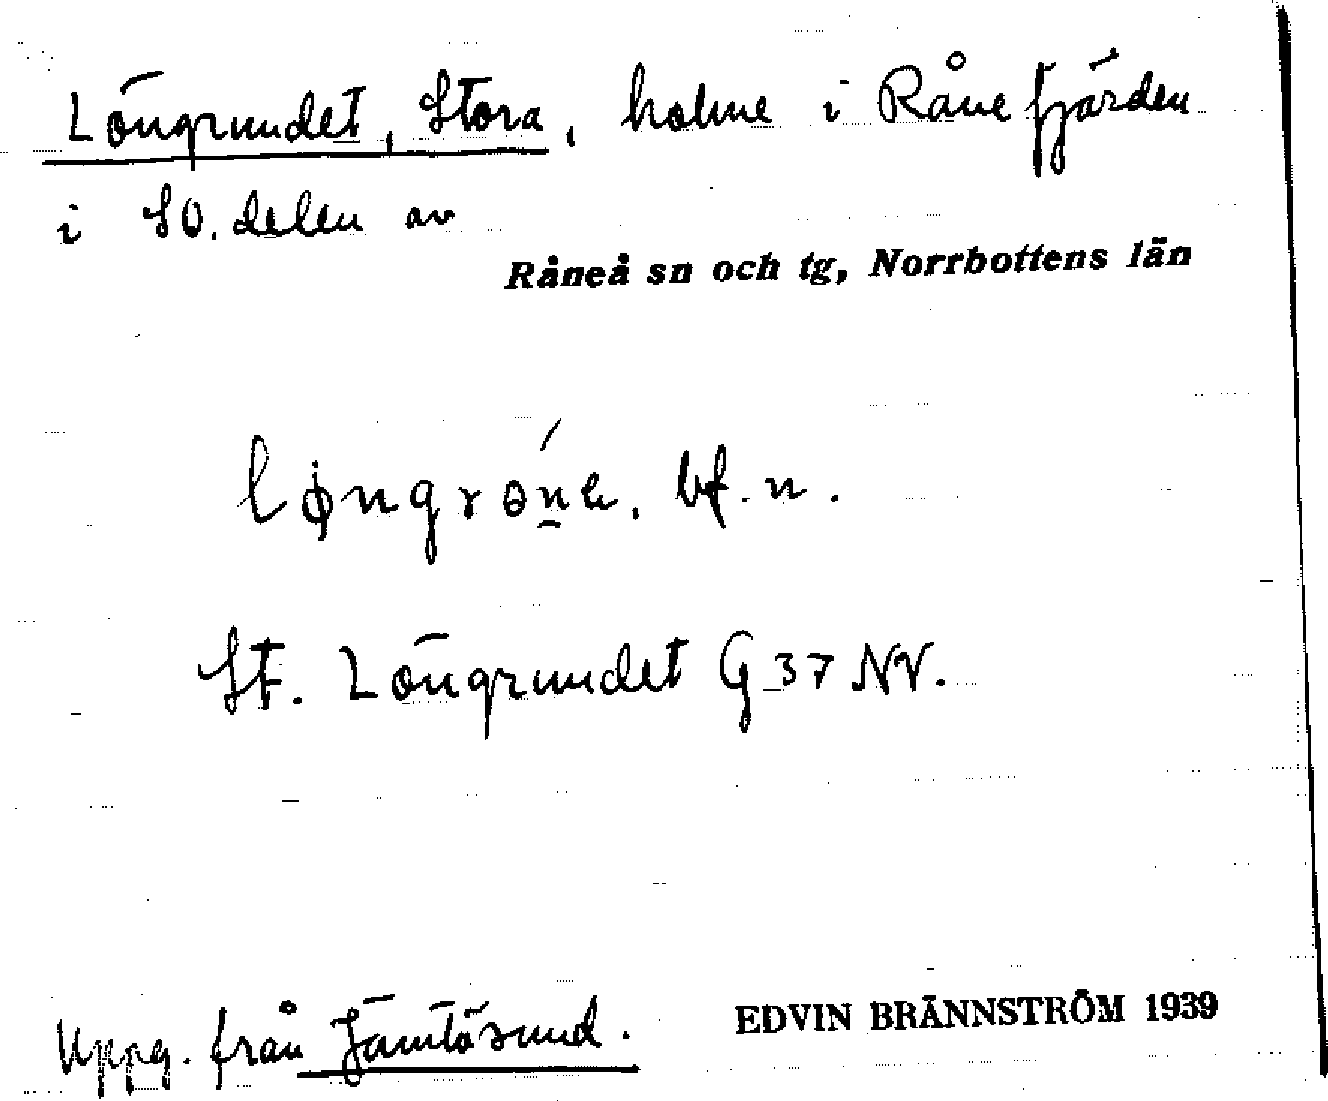 Löngrundet, Stora, holme i Rånefjärden
i SO. delen av
Råneå sn och tg, Norrbottens län
løngrɵn̲e, bf. n.
St. Löngrundet G 37 NV.
Uppg. från Jämtösund.
EDVIN BRÄNNSTRÖM 1939